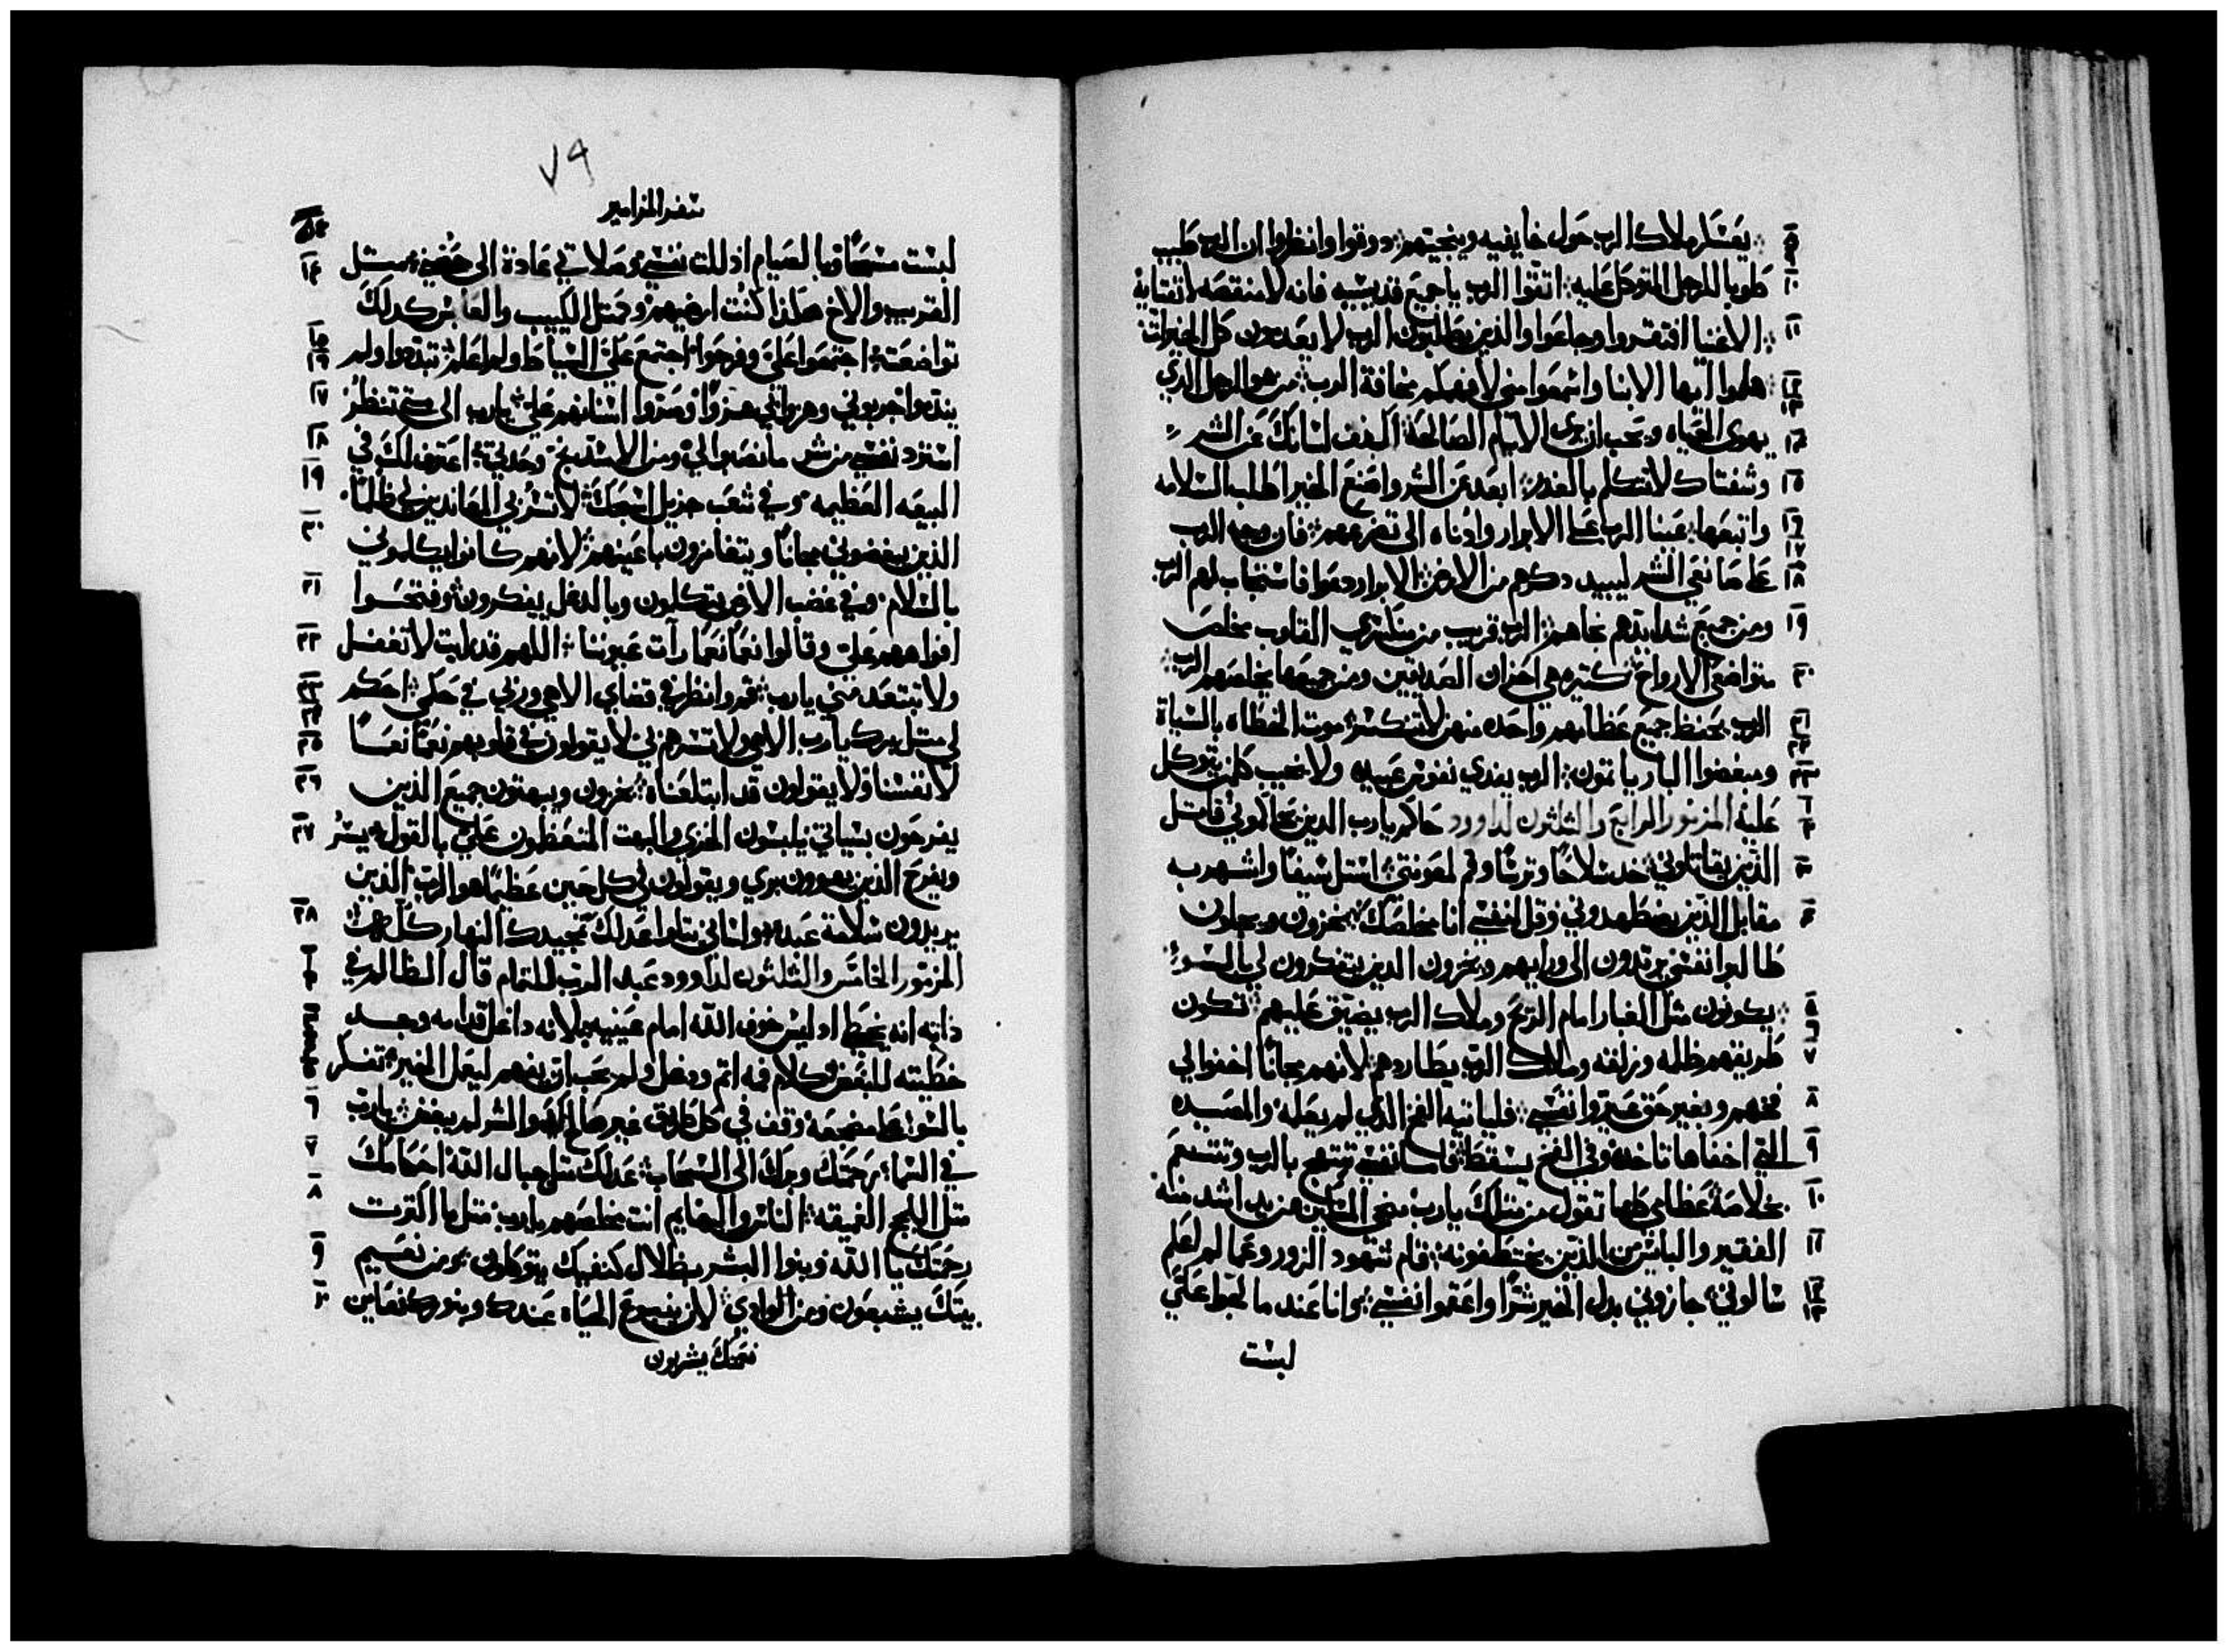 يعسكر ملاك الرب حول خايفيه وينجيهم دوقوا وانظروا ان الرب طيب
طوبا للرجل المتوكل عليه اتقوا الرب يا جميع قديسيه فانه لا منقصه لاتقيايه
الاغنيا افتقروا وجاعوا والذين يطلبون الرب لا يعدمون كل الخيرات
هلموا ايها الابنا واسمعوا مني لافهمكم مخافة الرب من هو الرجل الدي
يهوى الحياه ويحب ان يرى الايام الصالحة اكفف لسانك عن الشر
وشفتاك لا تتكلم بالغدر ابعد عن الشر واصنع الخير اطلب السلامه
واتبعها عينا الرب على الابرار وادناه الى تضرعهم فان وجه الرب
على صانعي الشر ليبيد دكرهم من الارض الابرار دعوا فاستجاب لهم الرب
ومن جميع شدايدهم نجاهم الرب قريب من منكسري القلوب يخلص
متواضعي الارواح كتيره هي احزان الصديقين ومن جميعها يخلصهم الرب
الرب يحفظ جميع عظامهم واحده منهن لا تنكسر موت الخطاه بالسياة
ومبغضوا البار ياتمون الرب يفدي نفوس عبيده ولا يخيب كلمن يتوكل
عليه المزمور الرابع والثلثون لداوود حاكم يارب الدين يحاكموني قاتل
الذين يقاتلوني خد سلاحا وترسا وقم لمعونتي استل سيفا واشهر به
مقابل الذين يضطهدوني وقل لنفسي انا مخلصك يخزون ويخجلون
طالبوا نفسي يرتدون الى ورايهم ويخزون الدين يتفكرون لي بالسو
يكونون مثل الغبار امام الريح وملاك الرب يضيق عليهم تكون
طريقهم ظلمه وزلقه وملاك الرب يطاردهم لانهم مجانا اخفوا لي
فخهم وبغير حق عيروا نفسي فلياتيه الفخ الذي لم يعلمه والمصيده
التي اخفاها تاخده وفي الفخ يسقط فاما نفسي تبتهج بالرب وتتنعم
بخلاصه عظامي كلها تقول من مثلك يارب منجي المسكين من يد اشد منه
الفقير والبايس من الذين يختطفونه قام شهود الزور وعما لم اعلم
سالوني جازوني بدل الخير شرا واعقموا نفسي وانا عند ما لجوا علي
لبست
٧٩
سفر المزامير
لبست مسحا وبالصيام اذللت نفسي وصلاتي عادة الى حضني مثل
القريب والاخ هكذا كنت ارضيهم ومثل الكييب والعابس كدلك
تواضعت اجتمعوا علي وفرحوا اجتمع علي السياط ولم اعلم تبددوا ولم
يندموا جربوني وهزوا بي هزوا وصروا اسنانهم علي يارب الى متى تنتظر
استرد نفسي من شر ما نصبوا لي ومن الاسد بنج وحدتي اعترف لك في
البيعه العظيمه وفي شعب جزيل اسبحك لا تسر بي المعاندين لي ظلما
الذين يبغضوني مجانا ويتغامزون باعينهم لانهم كانوا يكلموني
بالسلام وفي غضب الارض يتكلون وبالدغل يفكرون وفتحوا
افواههم علي وقالوا نعما نعما رات عيوننا اللهم قد رايت لا تغفل
ولا تبتعد مني يارب قم وانظر في قضاي الاهي وربي في حكمي احكم
لي مثل برك يارب الاهي ولا تسرهم بي لا يقولون في قلوبهم نعما نعما
لانفسنا ولا يقولون قد ابتلعناه يخزون ويبهتون جميع الذين
يفرحون بسياتي يلبسون الخزي والبهت المتعظمون علي بالقول يسر
ويفرح الذين يهوون بري ويقولون في كل حين عظيما هو الرب الذين
يريدون سلامة عبده ولساني يتلوا عدلك تمجيدك النهار كله
المزمور الخامس والثلثون لداوود عبد الرب للتمام قال الظالم في
ذاته انه يخطي اد ليس خوف الله امام عينيه لانه داغل قدامه وجد
خطيته للبغض كلام فمه اتم ودغل ولم يحب ان يفهم ليعمل الخير تفكر
بالسو على مضجعه وقف في كل طريق غير صالح والشر لم يبغض يارب
في السما رحمتك وبرك الى السحاب عدلك مثل جبال الله احكامك
مثل اللجج العميقه الناس والبهايم انت تخلصهم يارب مثل ما اكثرت
رحمتك يا الله وبنوا البشر بظلال كنفيك يتوكلون ومن نعيم
بيتك يشبعون ومن الوادي لان ينبوع الحياه عندك وبنورك نعاين
نعمتك يشربون